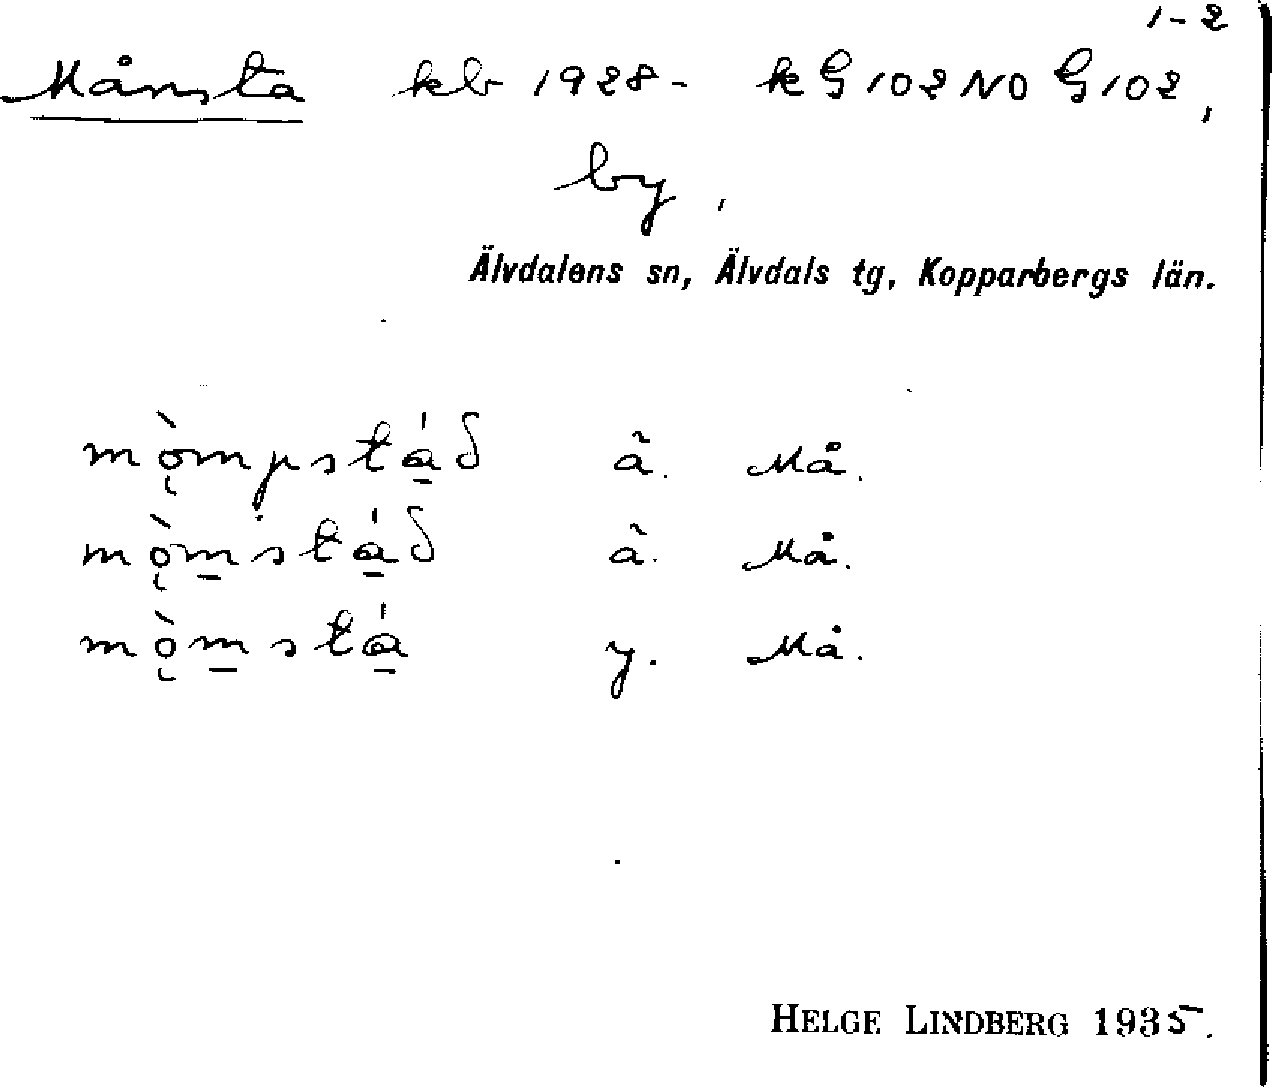 1-2
Månsta kb 1928- k G 102 NO G 102,
by,
Älvdalens sn, Älvdals tg, Kopparbergs län.
mǫ̀mpstá̱d ä. Må.
mǫ̀m̱stá̱d ä. Må.
mǫ̀m̱stá̱ y. Må.
HELGE LINDBERG 1935.